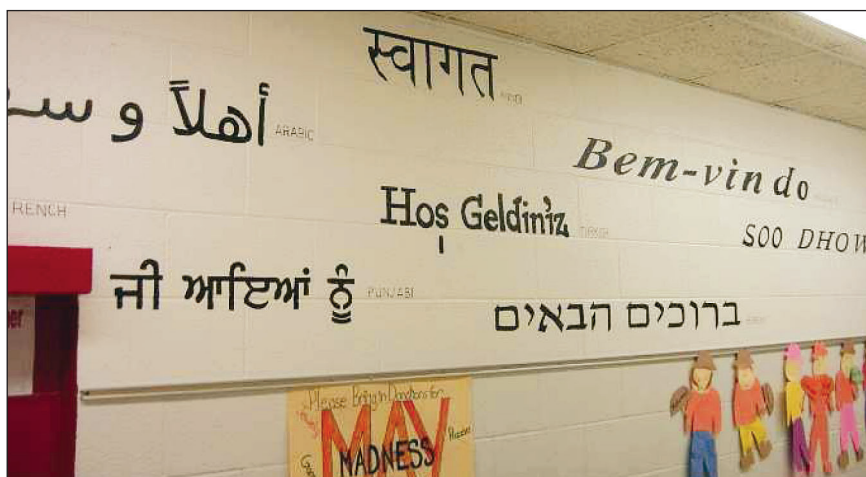 स्वागत
HINDI
أهلاً و
ARABIC
Bem-vindo
RENCH
Hoş Geldin'iz
TURKISH
SOO DHOW
ਜੀ ਆਇਆਂ ਨੂੰ
PUNJABI
ברוכים הבאים
HEBREW
Please Bring in Donations for
MAY
MADNESS